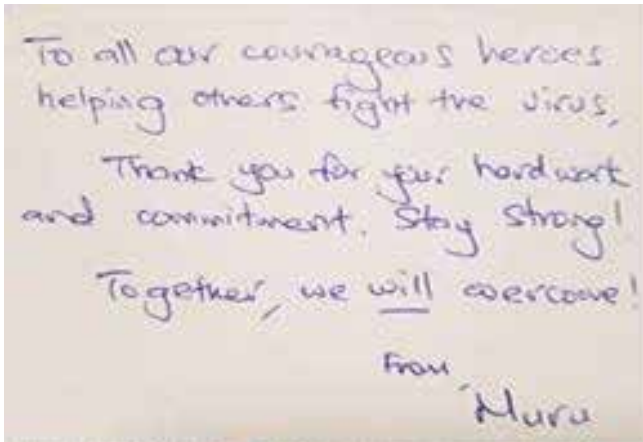 To all our courageous heroes
helping others fight the virus,
Thank you for your hard work
and commitment. Stay strong!
Together, we will overcome!
From,
Muru